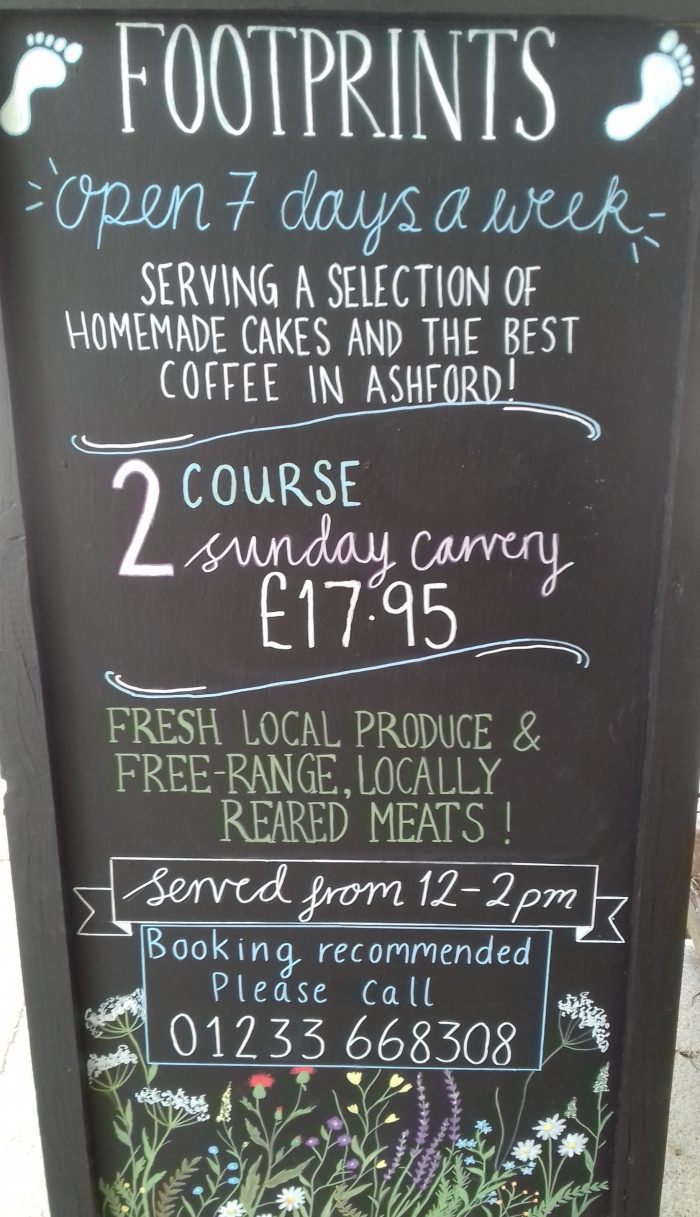 FOOTPRINTS
open 7 days a week
SERVING A SELECTION OF
HOMEMADE CAKES AND THE BEST
COFFEE IN ASHFORD!
2 COURSE
sunday carvery
£17.95
FRESH LOCAL PRODUCE &
FREE-RANGE, LOCALLY
REARED MEATS!
Served from 12-2pm
Booking recommended
Please call
01233 668308